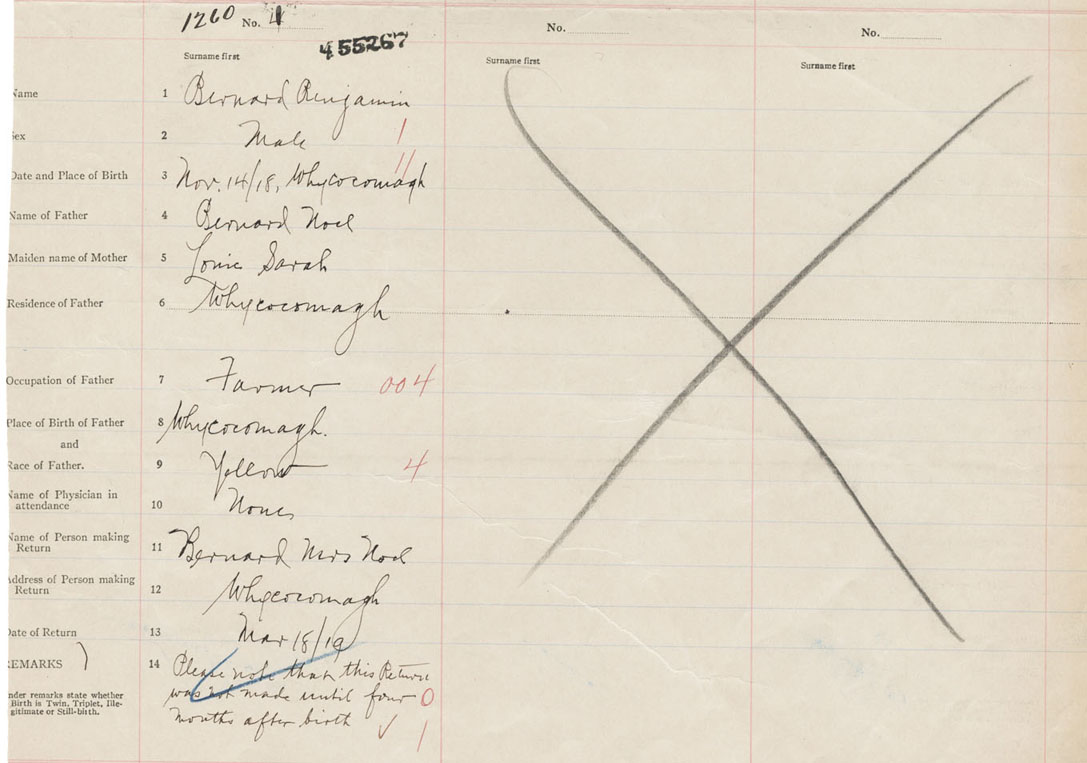 1260 No. 4
455267
No.
No.
Surname first
Surname first
Surname first
Name 1 Bernard Benjamin
Sex 2 Male 1
Date and Place of Birth 3 Nov. 14/18, Whycocomagh 11
Name of Father 4 Bernard Noel
Maiden name of Mother 5 Louie Sarah
Residence of Father 6 Whycocomagh
Occupation of Father 7 Farmer 004
Place of Birth of Father 8 Whycocomagh.
and
Race of Father. 9 Yellow 4
Name of Physician in
attendance 10 None
Name of Person making
Return 11 Bernard Mrs Noel
Address of Person making
Return 12 Whycocomagh
Date of Return 13 Mar 18/19
REMARKS 14 Please note that this Return
was not made until four 0
months after birth 1
Under remarks state whether
Birth is Twin, Triplet, Ille-
gitimate or Still-birth.